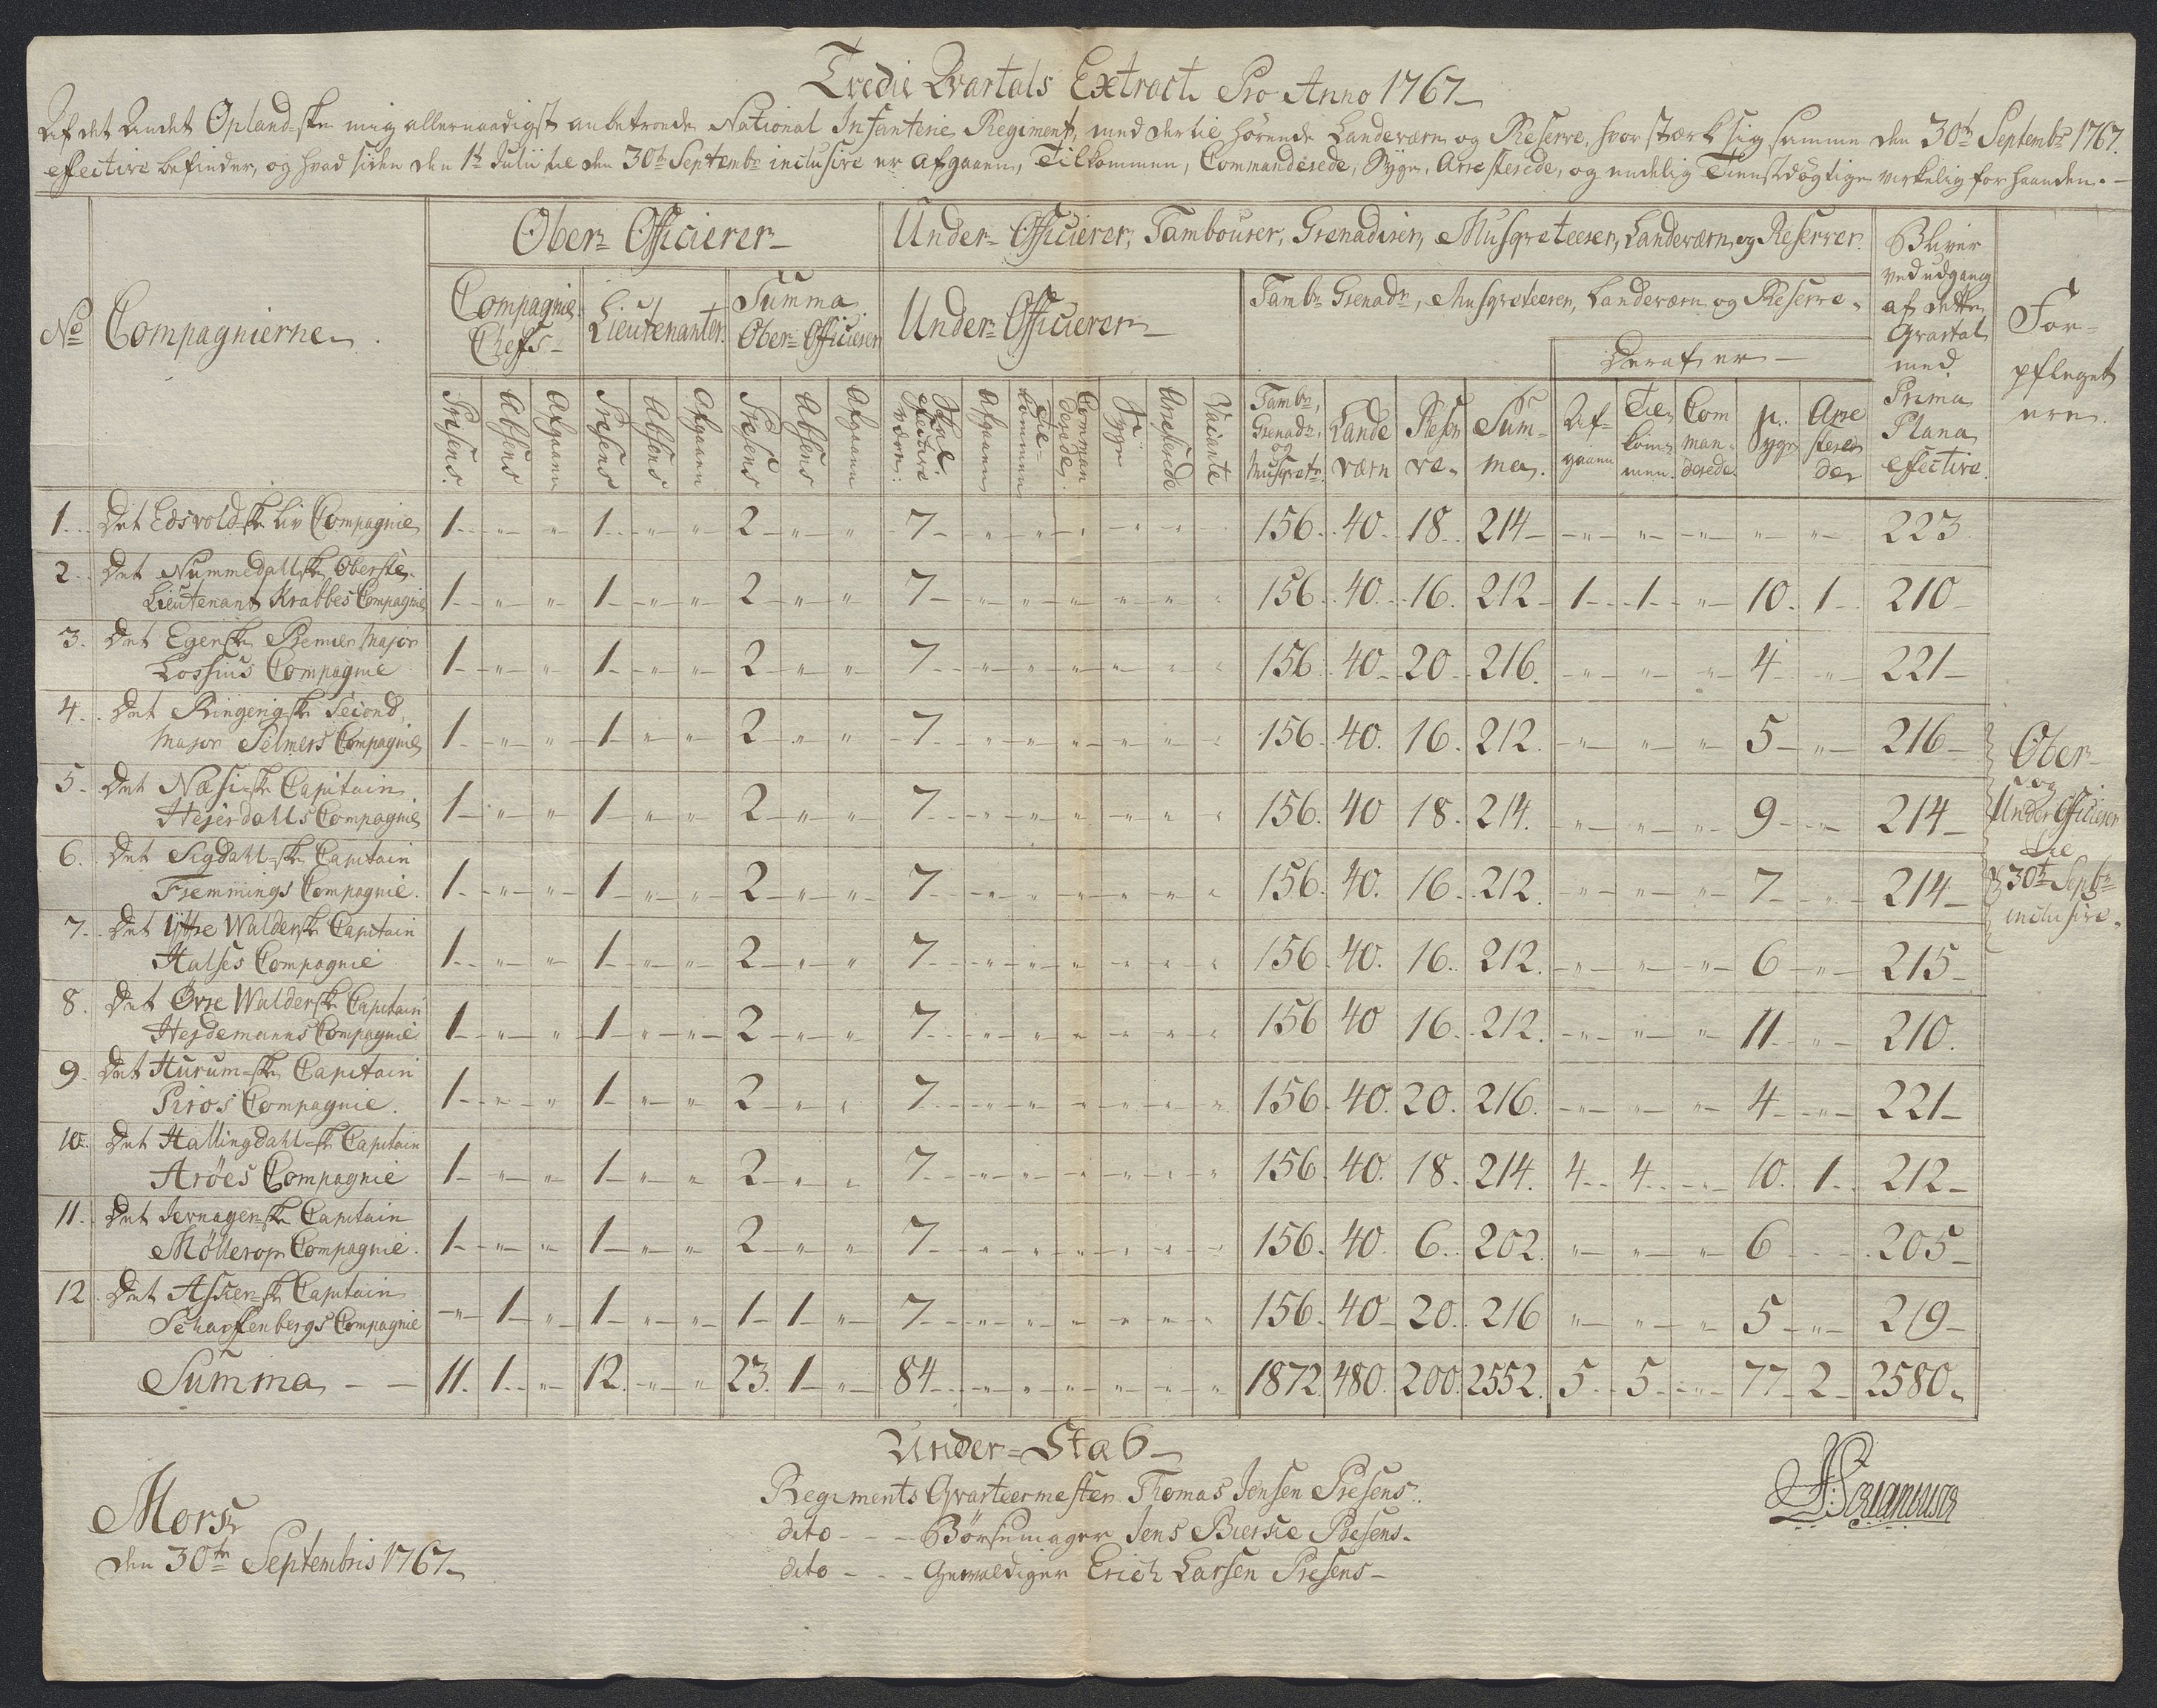 Tredie Qvartals Extract Pro Anno 1767
Af det Andet Opland-ske mig allernaadigst anbetroede National Infanterie Regiment, med dertil hörende Landeværn og Reserve, hvor stærk sig samme den 30te Septembr 1767.
effective befinder, og hvad siden den 1te Julii til den 30te Septembr inclusive er afgaaen, Tilkommen, Commanderede, Syge, Arresterede, og endelig Tienstdögtige virkelig forhaanden.
No Compagnierne
Ober-Officierer
Under-Officierer, Tambourer, Grenadirer, Musqveteerer, Landeværn, og Reserver.
Compagnie Chefs
Lieutenanter
Summa Ober-Officierer
Under-Officierer
Tambr Grenadr, Musqveteerer, Landeværn og Reserve
Deraf er
Bliver ved udgang af dette Qvartal med Prima Plana effective
For-pfleget ere
Præsens. Absens Afgaaen Præsens Absens Afgaaen Præsens Absens Afgaaen
Skal effective være: Afgaaen Tilkommen Commanderede Syge Arresterede Vacante
Tambr, Grenadr, og Musqvetr. Landeværn Reserve Summa. Afgaaen Tilkommen. Commanderede. Syge Arresterede
1. Det Edsvold-ske Liv Compagnie 1 " " 1 " " 2 " " 7 " " " " " " 156. 40. 18. 214 " " " " " 223
2. Det Nummedallske Oberste-
Lieutenant Krabbes Compagnie 1 " " 1 " " 2 " " 7 " " " " " " 156. 40. 16. 212 1 1 " 10. 1 210
3. Det Egerske Premier Major
Lossius Compagnie 1 " " 1 " " 2 " " 7 " " " " " " 156 40 20 216. " " " 4 " 221
4. Det Ringerig-ske Second
Major Selmers Compagnie 1 " " 1 " " 2 " " 7 " " " " " " 156. 40. 16. 212. " " " 5 " 216
5. Det Næsi-ske Capitain
Hejerdahls Compagnie 1 " " 1 " " 2 " " 7 " " " " " " 156. 40 18. 214. " " " 9 " 214
6. Det Sigdall-ske Capitain
Fremmings Compagnie. 1 " " 1 " " 2 " " 7 " " " " " " 156. 40. 16 212. " " " 7 " 214
7. Det Ÿttre Walderske Capitain
Halses Compagnie 1 " " 1 " " 2 " " 7 " " " " " " 156. 40. 16. 212. " " " 6 " 215
8. Det Övre Walderske Capitain
Hejdemanns Compagnie 1 " " 1 " " 2 " " 7 " " " " " " 156 40 16 212. " " " 11 " 210.
9. Det Hurum-ske Capitain
Piros Compagnie. 1 " " 1 " " 2 " " 7 " " " " " " 156. 40. 20. 216. " " " 4 " 221
10. Det Hallingdahl-ske Capitain
Aröes Compagnie 1 " " 1 " " 2 " " 7 " " " " " " 156. 40. 18. 214. 4 4 " 10. 1 212
11. Det Jevnager-ske Capitain
Möllerop Compagnie. 1 " " 1 " " 2 " " 7 " " " " " " 156. 40. 6. 202. " " " 6 " 205
12. Det Asker-ske Capitain
Scharffenbergs Compagnie " 1 " 1 " " 1 1 " 7 " " " " " " 156. 40 20. 216 " " " 5 " 219
Summa 11. 1. " 12. " " 23. 1 " 84 " " " " " " 1872. 480. 200. 2552. 5 5 " 77 2 2580
Ober-
og
Under Officierer
til
30te Septbr
inclusive.
Under-Stab
Regiments Qvarteermester Thomas Jensen Præsens.
dito - - - Börsemager Jens Bierke Præsens.
dito - - - Gevaldiger Erich Larsen Præsens
Mors
den 30te Septembris 1767